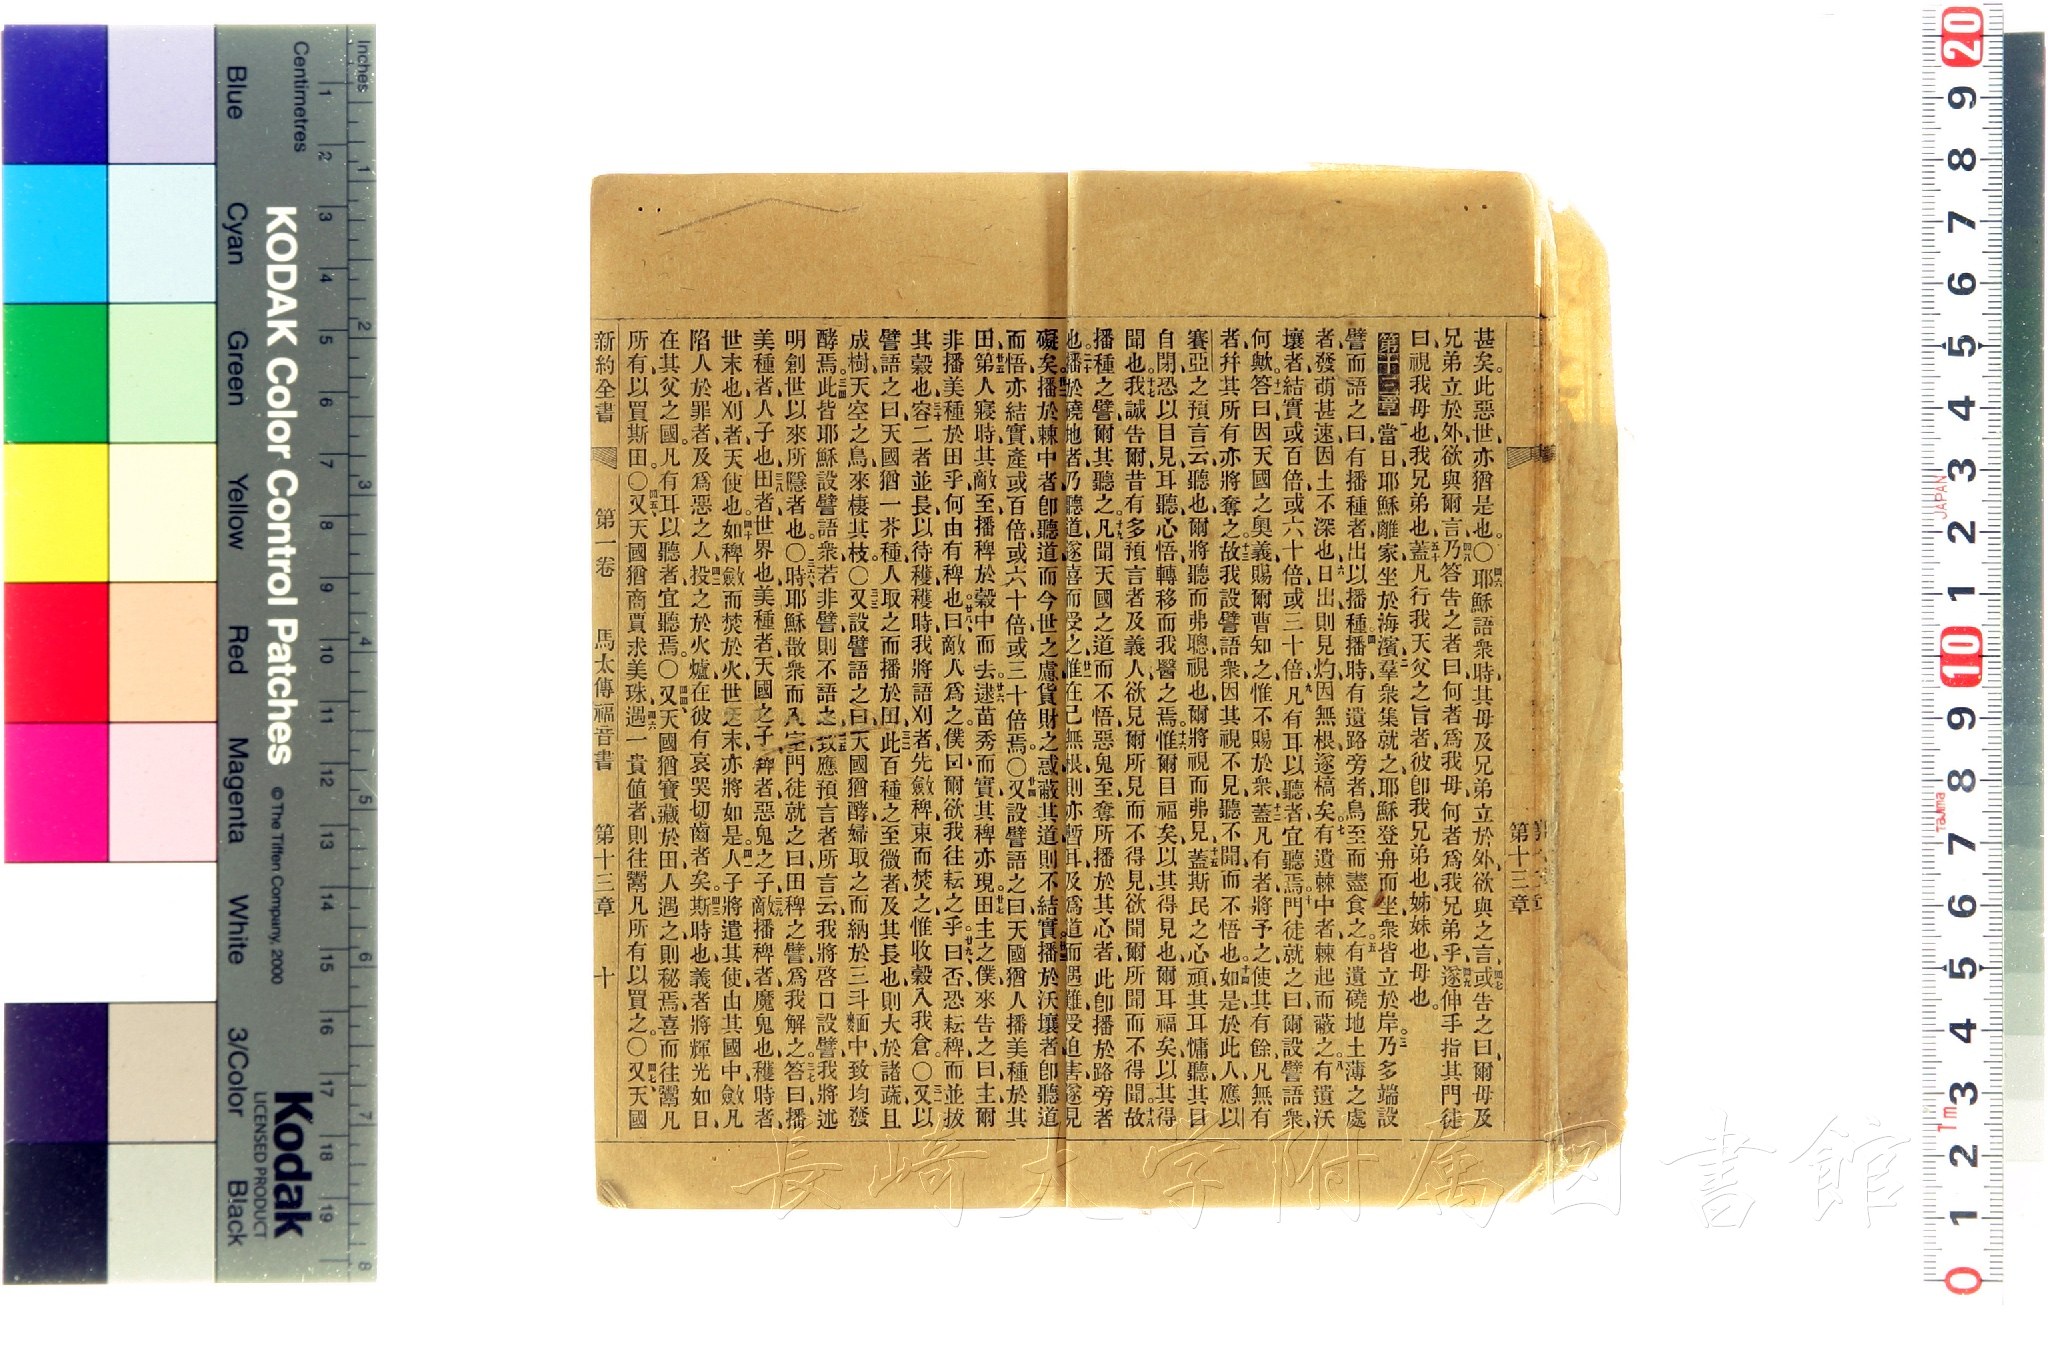 甚矣此惡世亦猶是也〇耶穌語衆時其母及兄弟立於外欲與之言或告之曰爾母及
兄弟立於外欲與爾言乃答告之者曰何者爲我母何者爲我兄弟乎遂伸手指其門徒
曰視我母也我兄弟也蓋凡行我天父之旨者彼卽我兄弟也姊妹也母也
第十三章 當日耶穌離家坐於海濱羣衆集就之耶穌登舟而坐衆皆立於岸乃多端設
譬而語之曰有播種者出以播種播時有遺路旁者鳥至而盡食之有遺磽地土薄之處
者發萌甚速因土不深也日出則見灼因無根遂槁矣有遺棘中者棘起而蔽之有遺沃
壤者結實或百倍或六十倍或三十倍凡有耳以聽者宜聽焉門徒就之曰爾設譬語衆
何歟答曰因天國之奧義賜爾曹知之惟不賜於衆蓋凡有者將予之使其有餘凡無有
者幷其所有亦將奪之故我設譬語衆因其視不見聽不聞而不悟也如是於此人應以
賽亞之預言云聽也爾將聽而弗聰視也爾將視而弗見蓋斯民之心頑其耳慵聽其目
自閉恐以目見耳聽心悟轉移而我醫之焉惟爾目福矣以其得見也爾耳福矣以其得
聞也我誠告爾昔有多預言者及義人欲見爾所見而不得見欲聞爾所聞而不得聞故
播種之譬爾其聽之凡聞天國之道而不悟惡鬼至奪所播於其心者此卽播於路旁者
也播於磽地者乃聽道遂喜而受之惟在己無根則亦暫耳及爲道而遇難受迫害遂見
礙矣播於棘中者卽聽道而今世之慮貨財之惑蔽其道則不結實播於沃壤者卽聽道
而悟亦結實產或百倍或六十倍或三十倍焉〇又設譬語之曰天國猶人播美種於其
田第人寢時其敵至播稗於穀中而去逮苗秀而實其稗亦現田主之僕來告之曰主爾
非播美種於田乎何由有稗也曰敵人爲之僕曰爾欲我往耘之乎曰否恐耘稗而並拔
其穀也容二者並長以待穫穫時我將語刈者先斂稗束而焚之惟收穀入我倉〇又以
譬語之曰天國猶一芥種人取之而播於田此百種之至微者及其長也則大於諸蔬且
成樹天空之鳥來棲其枝〇又設譬語之曰天國猶酵婦取之而納於三斗麵中致均發
酵焉此皆耶穌設譬語衆若非譬則不語之致應預言者所言云我將啓口設譬我將述
明創世以來所隱者也〇時耶穌散衆而入室門徒就之曰田稗之譬爲我解之答曰播
美種者人子也田者世界也美種者天國之子稗者惡鬼之子敵播稗者魔鬼也穫時者
世末也刈者天使也如稗斂而焚於火世之末亦將如是人子將遣其使由其國中斂凡
陷人於罪者及爲惡之人投之於火爐在彼有哀哭切齒者矣斯時也義者將輝光如日
在其父之國凡有耳以聽者宜聽焉〇又天國猶寶藏於田人遇之則秘焉喜而往鬻凡
所有以買斯田〇又天國猶商賈求美珠遇一貴值者則往鬻凡所有以買之〇又天國
新約全書 第一卷 馬太傳福音書 第十三章 十
第十三章
長崎大学附属図書館
Inches
Centimetres
Blue Cyan Green Yellow Red Magenta White 3/Color Black
KODAK Color Control Patches © The Tiffen Company, 2000
Kodak
LICENSED PRODUCT
1 2 3 4 5 6 7 8 9 10 11 12 13 14 15 16 17 18 19
1 2 3 4 5 6 7 8
20 9 8 7 6 5 4 3 2 1 10 9 8 7 6 5 4 3 2 1 0
JAPAN
Tajima